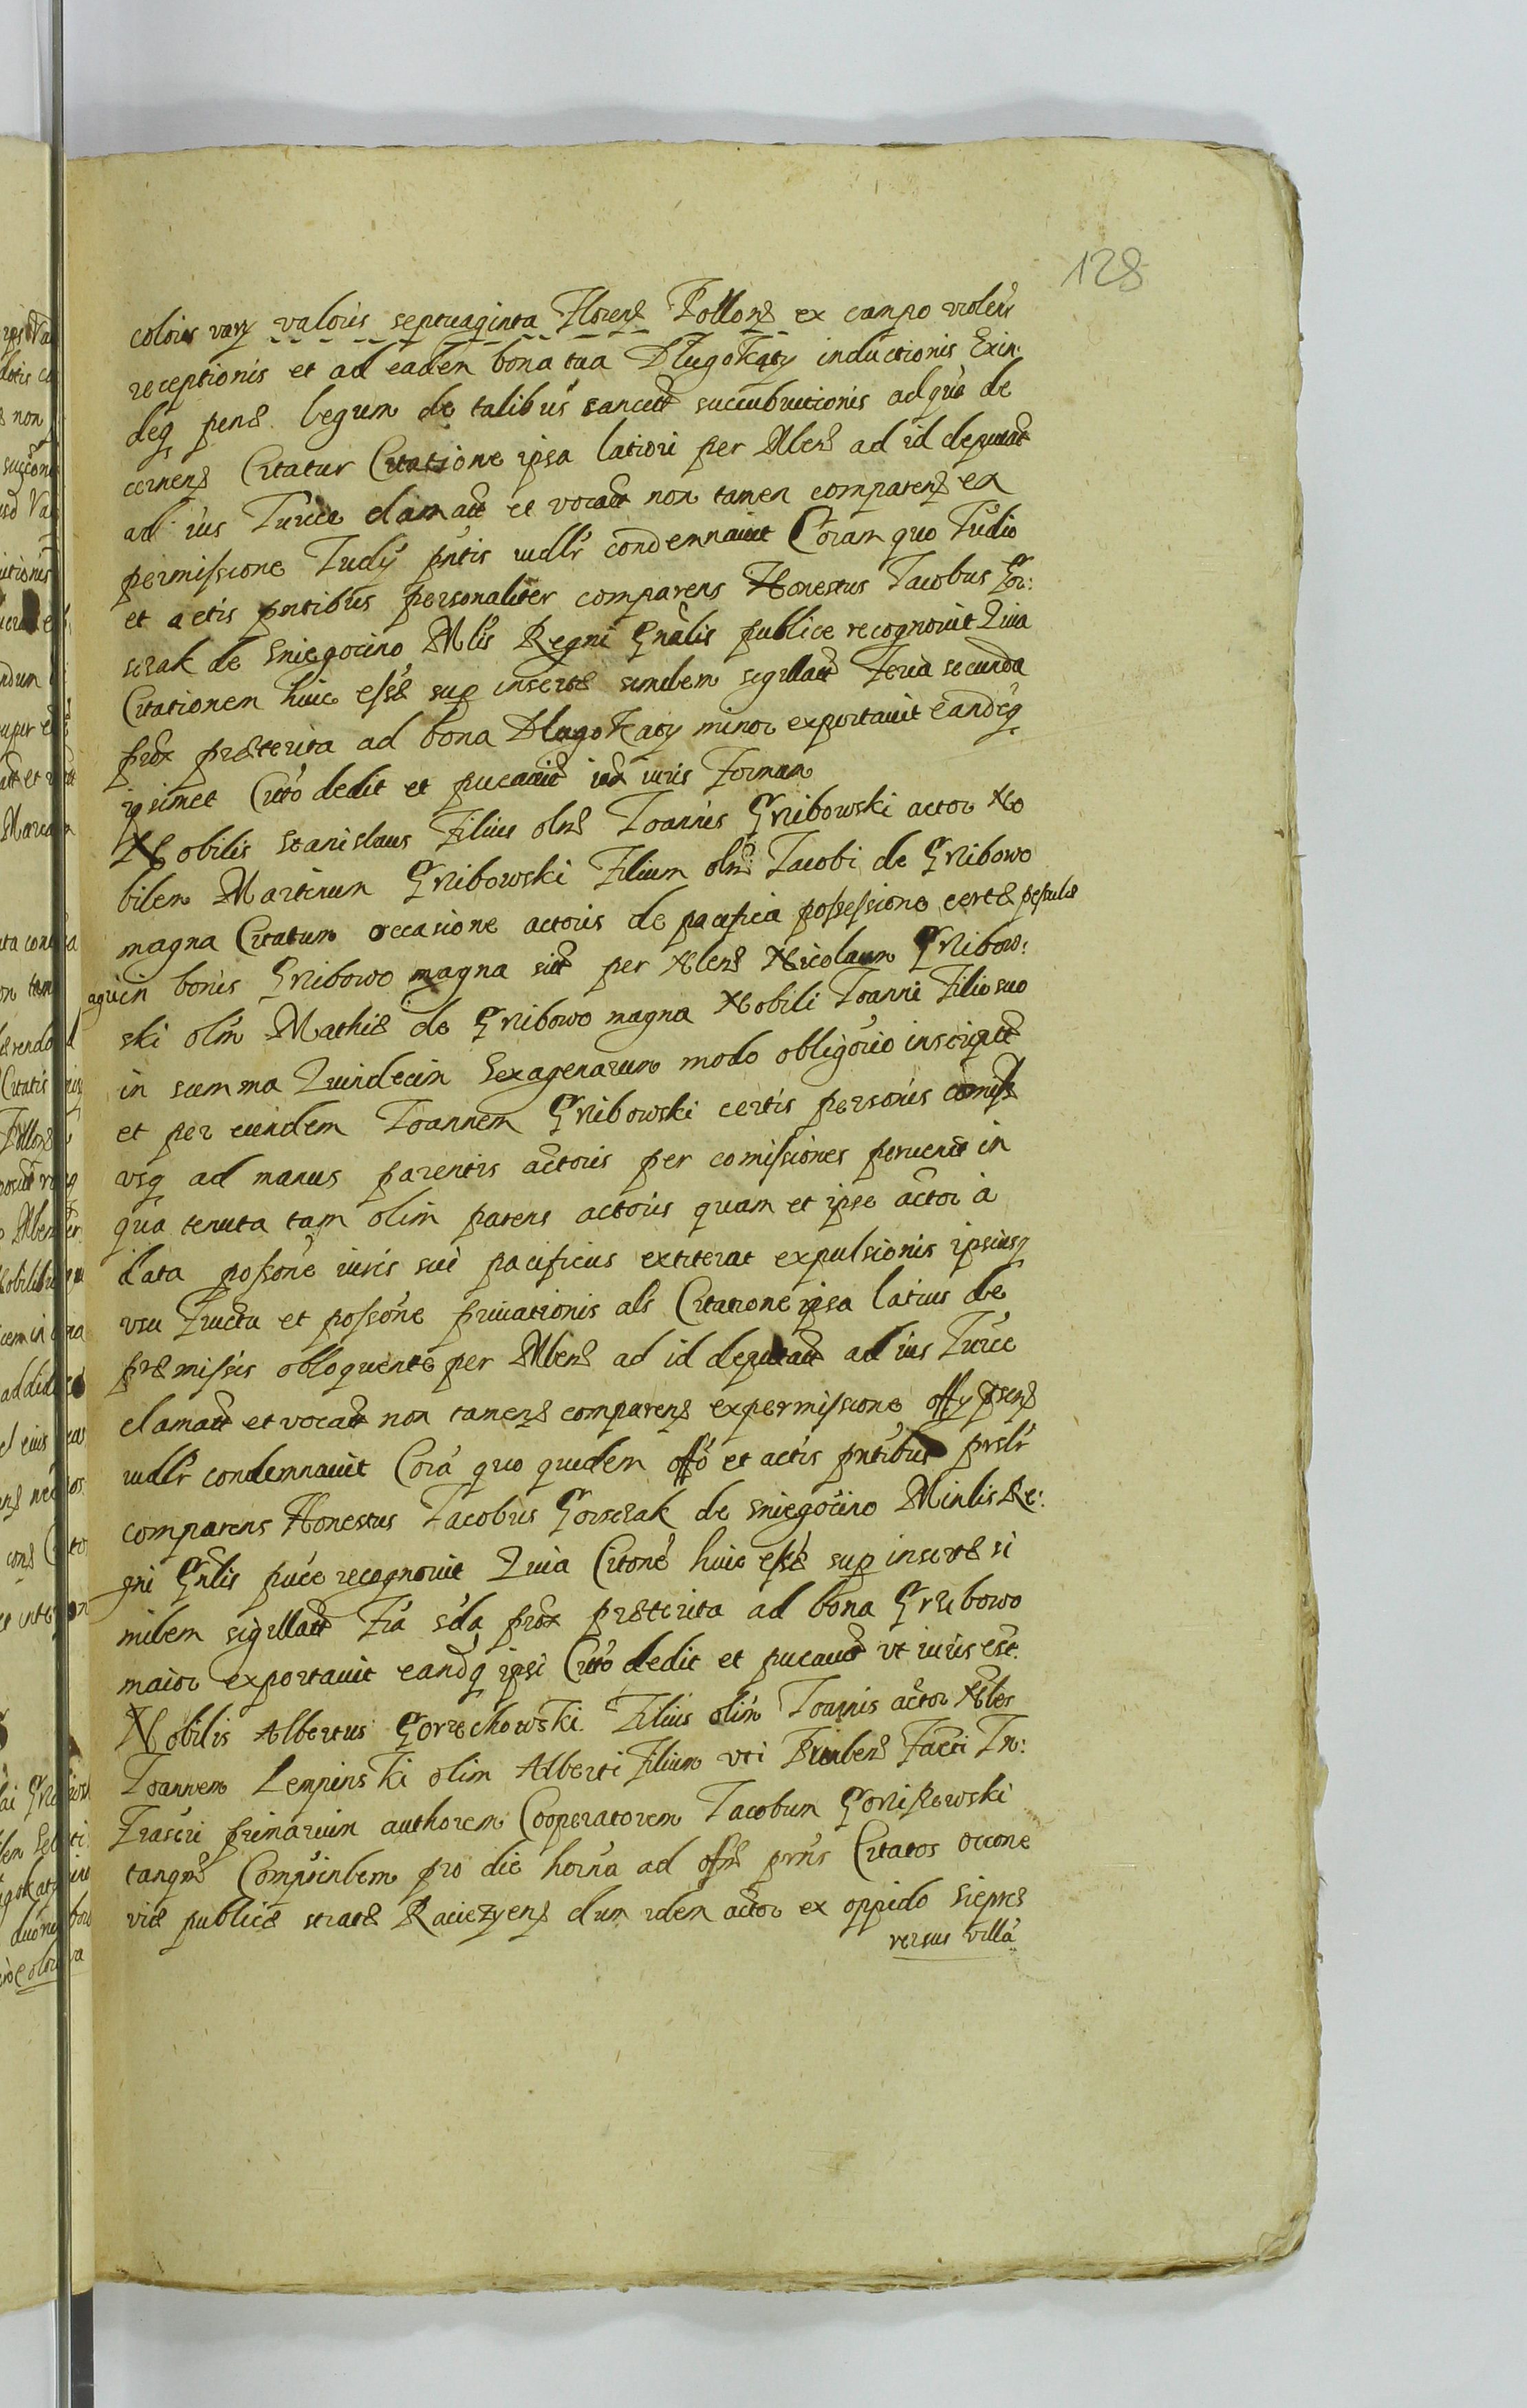 128
coloris varij valoris septuaginta Floren Pollon ex campo violen
receptionis et ad eaden bona tua Dlugokąty inductionis Exin
deq pene legum de talibus sancit succubuitionis ad que de
cernens Citatur Citatione ipsa latiori per Mlem ad id deputat
ad ius Turice clamat et vocat non tamen comparens ex
permissione Iudy pntis iudlr condemnauit Coram quo Iudio
et actis pntibus personaliter comparens Honestus Iacobus Gor:
sczak de Sniegocino Mlis Regni Gnalis publice recognouit Quia
Citationem huic esse sup inserte similem sigillat Feria secunda
prox præterita ad bona Dlugokaty minor exportauit Eandeq
ipsimet Cito dedit et pucauit iux iuris Formam
Nobilis Stanislaus Filius olim Ioannis Grzibowski actor No
bilem Martinum Grzibowski Filium olim Iacobi de Grzibowo
magna Citatum occasione actoris de pacifica possessione certe
in bonis Grzibowo magna sit per Nlem Nicolaum Grzibow:
ski olim Mathie de Grzibowo magna Nobili Ioanni Filio suo
in summa Quindecim Sexagenarum modo obligorio inscript
et per eundem Ioannem Grzibowski certis personis comiss
vsq ad manus parentis actoris per comissiones peruent in
qua tenuta tam olim parens actoris quam et ipse actor a
data possone iuris sui pacificus extiterat expulsionis ipsiusq
vsu Fructu et possone priuationis als Citatione ipsa latius de
præmissis obloquente per Mlem ad id deputat ad ius Turice
clamat et vocat non tamen comparens ex permissione offy psens
iudlr condemnauit Cora quo quidem offo et actis pntibus prslr
comparens Honestus Iacobus Gorsczak de Sniegocino Minlis Re:
gni Gnlis puce recognouit Quia Citone huic esse sup inserte si
milem sigillat Fia sda prox præterita ad bona Grzibowo
maior exportauit eandq ipsi Cito dedit et pucauit vt iuris est.
Nobilis Albertus Gorzechowski Filius olim Ioannis actor Nles
Ioannem Lempinski olim Alberti Filium vti Facti In:
Frascri primarium authorem Cooperatorem Iacobum
tanqm pro die horna ad offm prns Citatos occone
vie publice strate Raciezyens dum idem actor ex oppido Sieprcs
versus villa